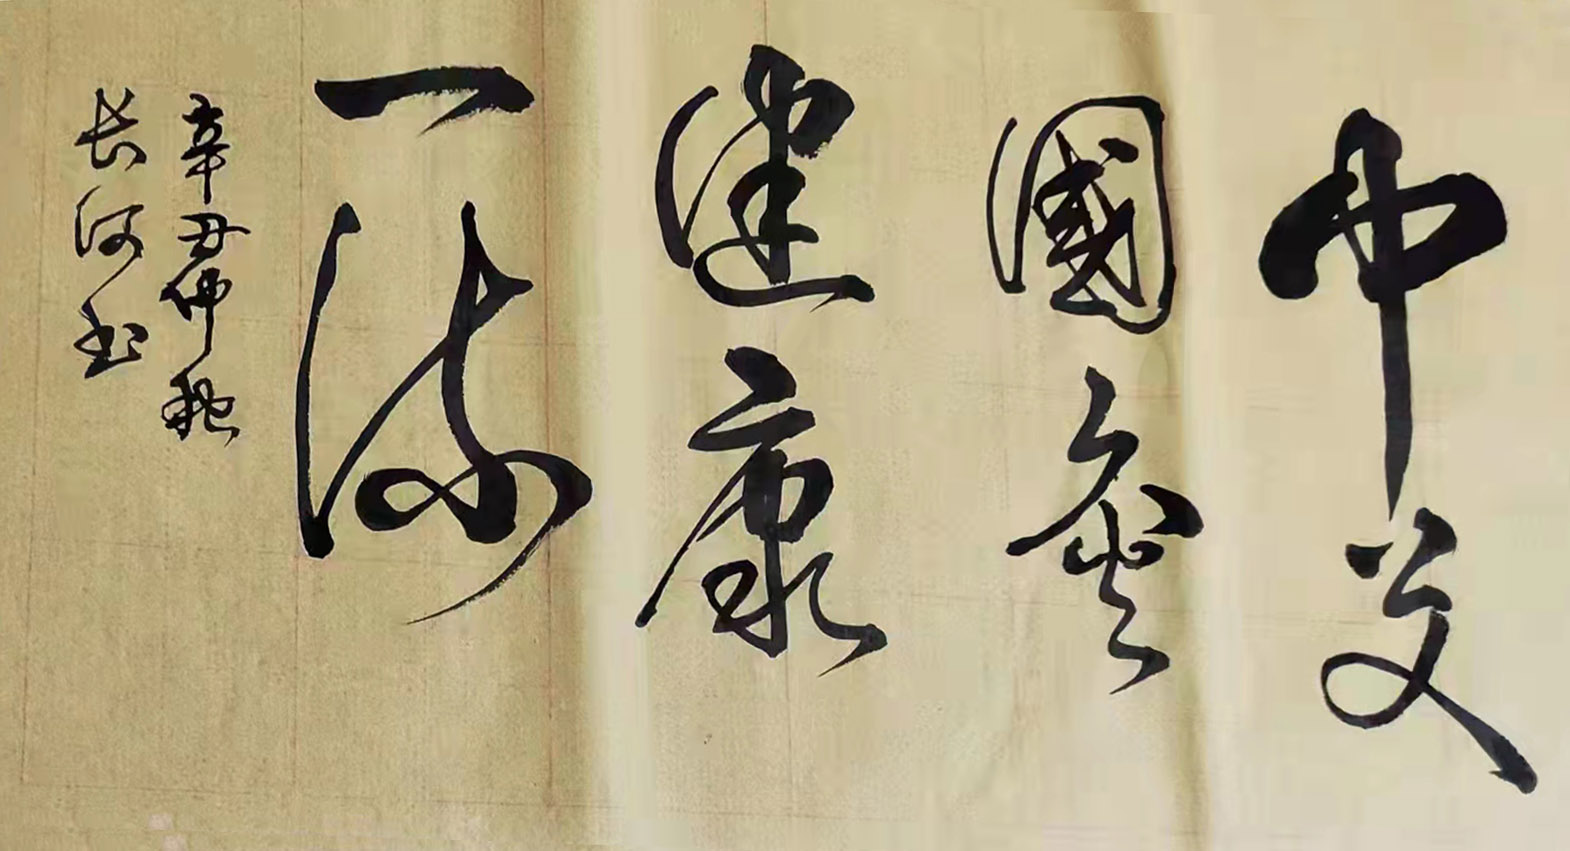 中艾
國灸
健康
一流
辛丑仲秋
长河书